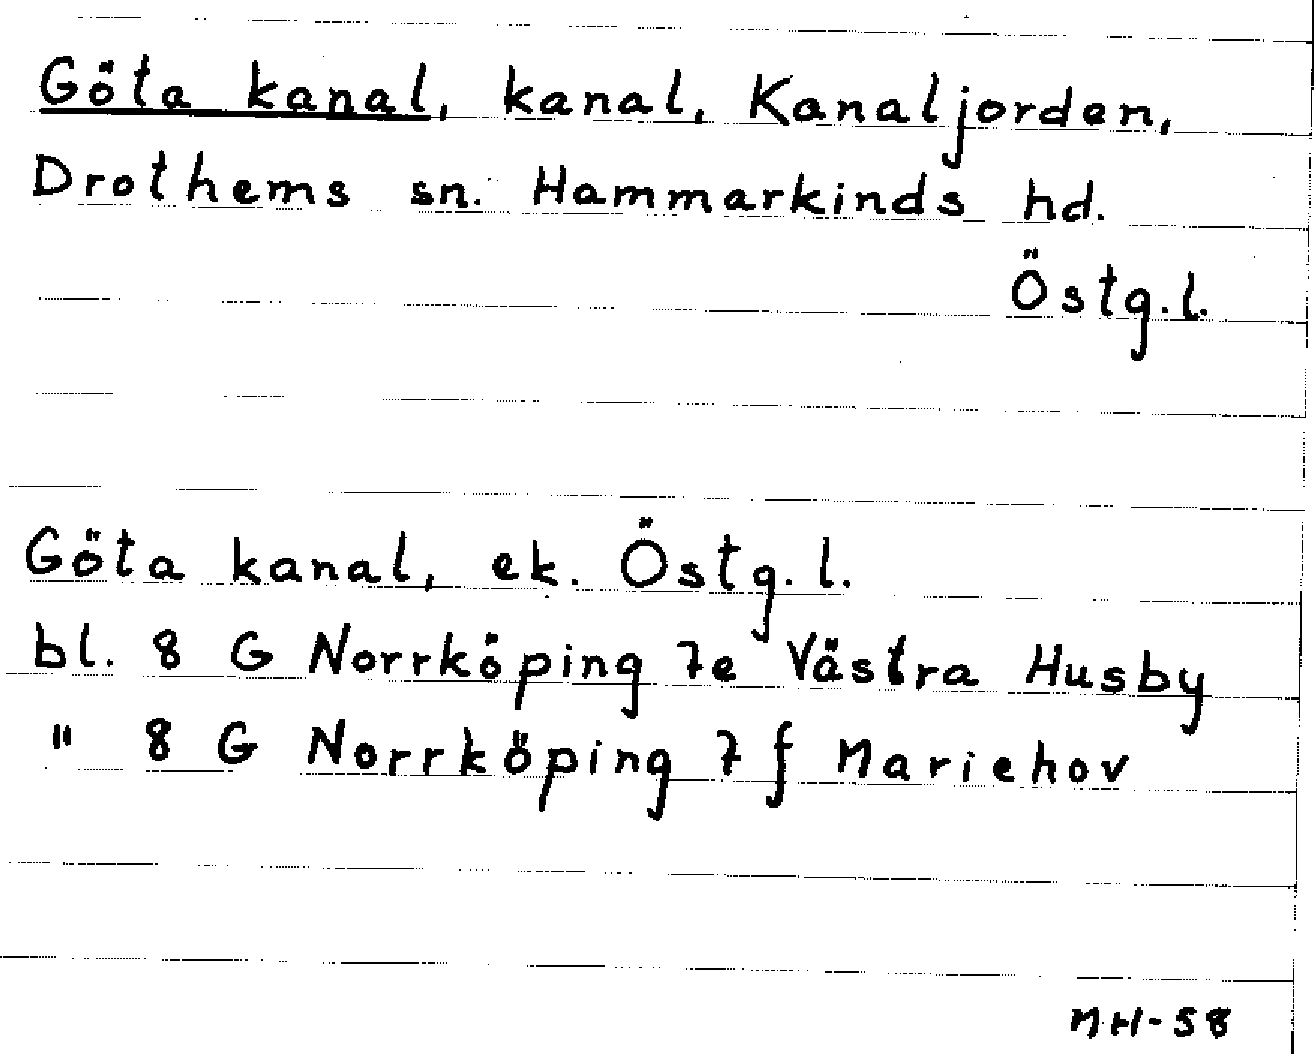 Göta kanal, kanal, Kanaljorden,
Drothems sn. Hammarkinds hd.
Östg.l.
Göta kanal, ek. Östg. l.
bl. 8 G Norrköping 7e Västra Husby
" 8 G Norrköping 7 f Mariehov
MH-58